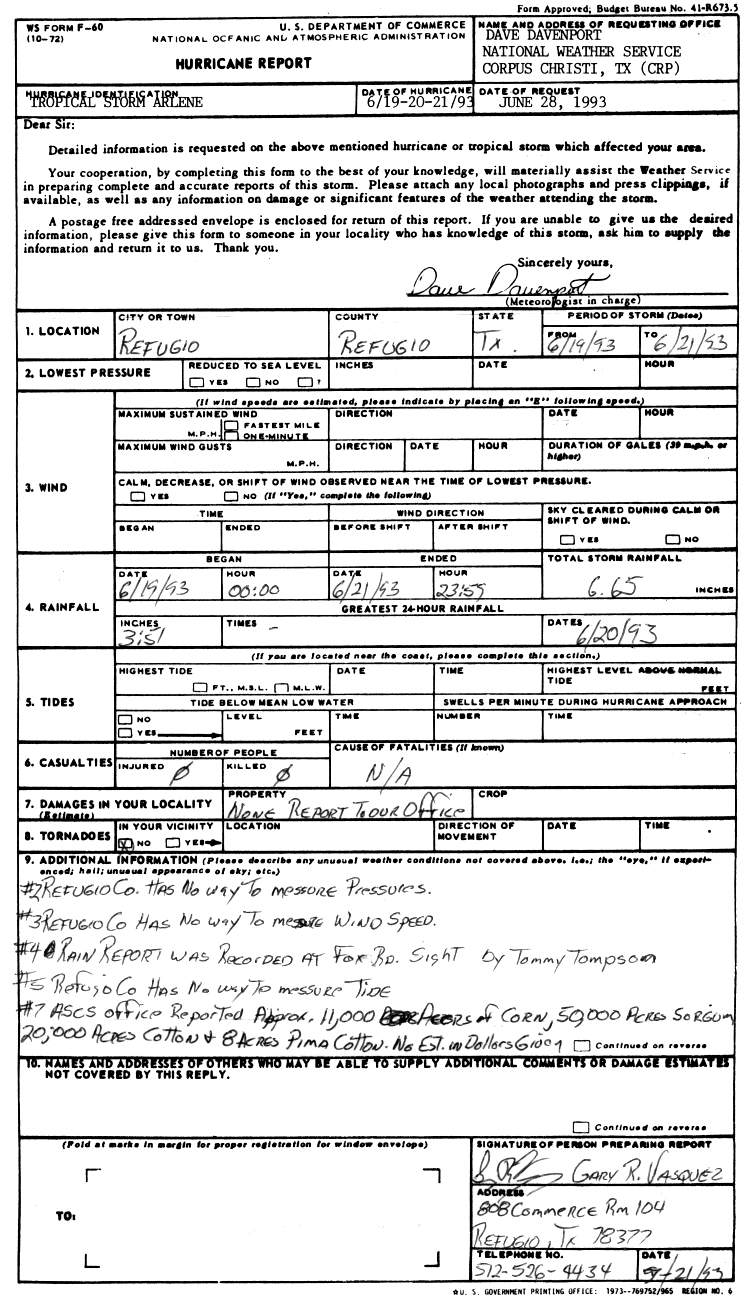 Form Approved; Budget Bureau No. 41-R673.5
WS FORM F-60
(10-72)
U. S. DEPARTMENT OF COMMERCE
NATIONAL OCEANIC AND ATMOSPHERIC ADMINISTRATION
HURRICANE REPORT
NAME AND ADDRESS OF REQUESTING OFFICE
DAVE DAVENPORT
NATIONAL WEATHER SERVICE
CORPUS CHRISTI, TX (CRP)
HURRICANE IDENTIFICATION
TROPICAL STORM ARLENE
DATE OF HURRICANE
6/19-20-21/93
DATE OF REQUEST
JUNE 28, 1993
Dear Sir:
Detailed information is requested on the above mentioned hurricane or tropical storm which affected your area.
Your cooperation, by completing this form to the best of your knowledge, will materially assist the Weather Service
in preparing complete and accurate reports of this storm. Please attach any local photographs and press clippings, if
available, as well as any information on damage or significant features of the weather attending the storm.
A postage free addressed envelope is enclosed for return of this report. If you are unable to give us the desired
information, please give this form to someone in your locality who has knowledge of this storm, ask him to supply the
information and return it to us. Thank you.
Sincerely yours,
Dave Davenport
(Meteorologist in charge)
1. LOCATION
CITY OR TOWN
REFUGIO
COUNTY
REFUGIO
STATE
Tx.
PERIOD OF STORM (Dates)
FROM
6/19/93
TO
6/21/93
2. LOWEST PRESSURE
REDUCED TO SEA LEVEL
YES NO ?
INCHES
DATE
HOUR
3. WIND
(If wind speeds are estimated, please indicate by placing an "E" following speed.)
MAXIMUM SUSTAINED WIND
M.P.H.
FASTEST MILE
ONE-MINUTE
DIRECTION
DATE
HOUR
MAXIMUM WIND GUSTS
M.P.H.
DIRECTION
DATE
HOUR
DURATION OF GALES (39 m.p.h. or
higher)
CALM, DECREASE, OR SHIFT OF WIND OBSERVED NEAR THE TIME OF LOWEST PRESSURE.
YES NO (If "Yes," complete the following)
TIME
BEGAN
ENDED
WIND DIRECTION
BEFORE SHIFT
AFTER SHIFT
SKY CLEARED DURING CALM OR
SHIFT OF WIND.
YES NO
4. RAINFALL
BEGAN
DATE
6/19/93
HOUR
00:00
ENDED
DATE
6/21/93
HOUR
23:59
TOTAL STORM RAINFALL
6.65 INCHES
GREATEST 24-HOUR RAINFALL
INCHES
3.51
TIMES
-
DATES
6/20/93
5. TIDES
(If you are located near the coast, please complete this section.)
HIGHEST TIDE
FT., M.S.L. M.L.W.
DATE
TIME
HIGHEST LEVEL ABOVE NORMAL
TIDE
FEET
TIDE BELOW MEAN LOW WATER
NO
YES
LEVEL
FEET
TIME
SWELLS PER MINUTE DURING HURRICANE APPROACH
NUMBER
TIME
6. CASUALTIES
NUMBER OF PEOPLE
INJURED
Ø
KILLED
Ø
CAUSE OF FATALITIES (If known)
N/A
7. DAMAGES IN YOUR LOCALITY
(Estimate)
PROPERTY
NONE REPORT TO OUR OFFICE
CROP
8. TORNADOES
IN YOUR VICINITY
NO YES
LOCATION
DIRECTION OF
MOVEMENT
DATE
TIME
9. ADDITIONAL INFORMATION (Please describe any unusual weather conditions not covered above. i.e.; the "eye," if experi-
enced; hail; unusual appearance of sky; etc.)
#2 REFUGIO Co. HAS NO WAY TO MESSURE PRESSURES.
#3 REFUGIO Co HAS NO WAY TO MESSURE WIND SPEED.
#4 RAIN REPORT WAS RECORDED AT FOX RD. Sight by Tommy Tompson
#5 Refugio Co HAS NO WAY TO MESSURE TIDE
#7 ASCS office Reported Approx. 11,000 Acers of CORN, 50,000 ACRES SORGIUM
20,000 ACRES COTTON & 8 ACRES PIMA COTTON. NO EST. IN DOLLARS GIVEN
Continued on reverse
10. NAMES AND ADDRESSES OF OTHERS WHO MAY BE ABLE TO SUPPLY ADDITIONAL COMMENTS OR DAMAGE ESTIMATES
NOT COVERED BY THIS REPLY.
Continued on reverse
(Fold at marks in margin for proper registration for window envelope)
TO:
SIGNATURE OF PERSON PREPARING REPORT
GARY R. VASQUEZ
ADDRESS
808 Commerce Rm 104
REFUGIO, Tx 78377
TELEPHONE NO.
512-526-4434
DATE
7/21/93
☆U. S. GOVERNMENT PRINTING OFFICE: 1973--769752/965 REGION NO. 6